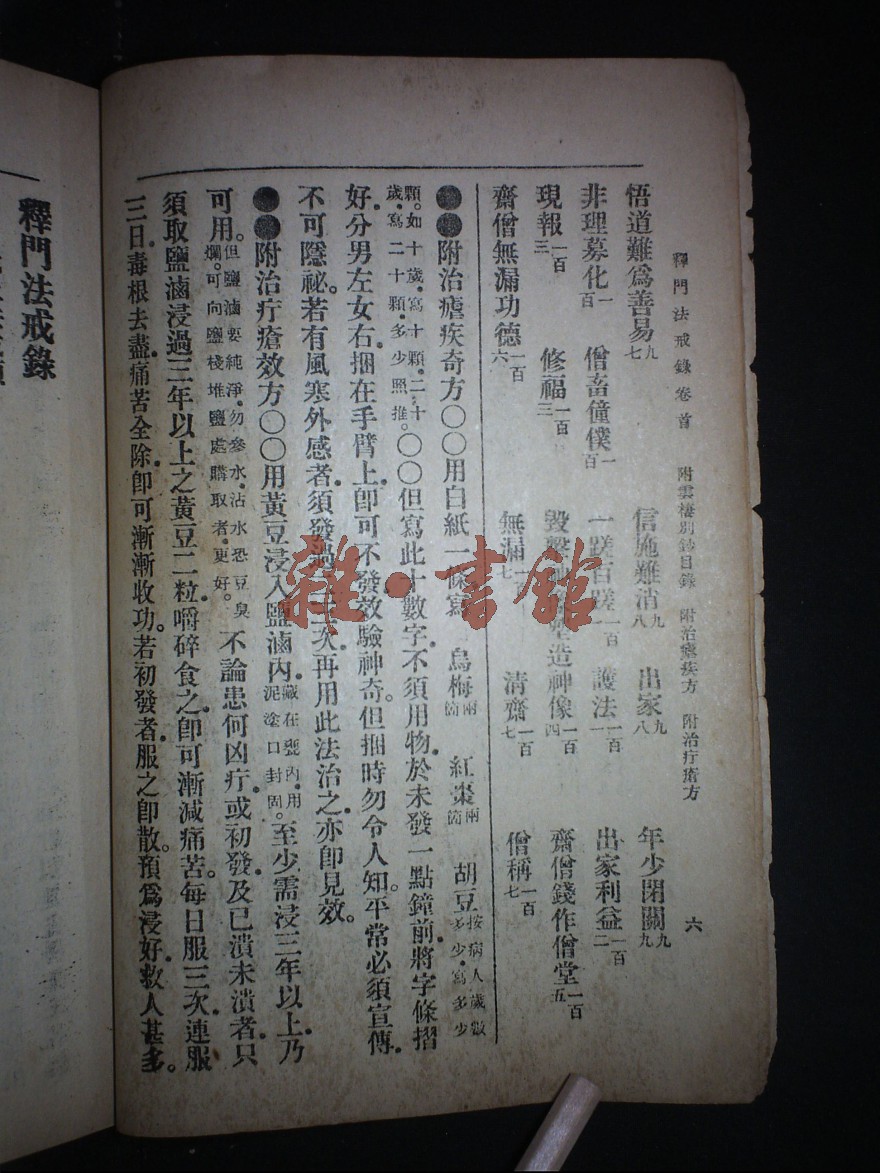 釋門法戒錄卷首 附雲棲別鈔目錄 附治瘧疾方 附治疔瘡方 六
悟道難爲善易九七 信施難消九八 出家九八 年少閉關九九
非理募化一百 僧畜僮僕一百 一蹉百蹉一百 護法一百一 出家利益一百二
現報一百三 修福一百三 毀擊 塑造神像一百四 齋僧錢作僧堂一百五
齋僧無漏功德一百六 無漏一百七 清齋一百七 僧稱一百七
●●附治瘧疾奇方○○用白紙一條寫 烏梅兩箇 紅棗兩箇 胡豆按病人歲數多少。寫多少
顆。如十歲。寫十顆。二十歲。寫二十顆。多少照推。○○但寫此十數字。不須用物。於未發一點鐘前。將字條摺
好。分男左女右。捆在手臂上。卽可不發。效驗神奇。但捆時勿令人知。平常必須宣傳。
不可隱祕。若有風寒外感者。須發過二三次。再用此法治之。亦卽見效。
●●附治疔瘡效方○○用黃豆浸入鹽滷內。藏在甕內。用泥塗口封固。至少需浸三年以上。乃
可用。但鹽滷要純淨。勿參水。沾水恐豆臭爛。可向鹽棧堆鹽處購取者。更好。不論患何凶疔。或初發。及已潰未潰者。只
須取鹽滷浸過三年以上之黃豆二粒。嚼碎食之。卽可漸減痛苦。每日服三次。連服
三日。毒根去盡。痛苦全除。卽可漸漸收功。若初發者。服之卽散。預爲浸好。救人甚多。
釋門法戒錄
雜·書館